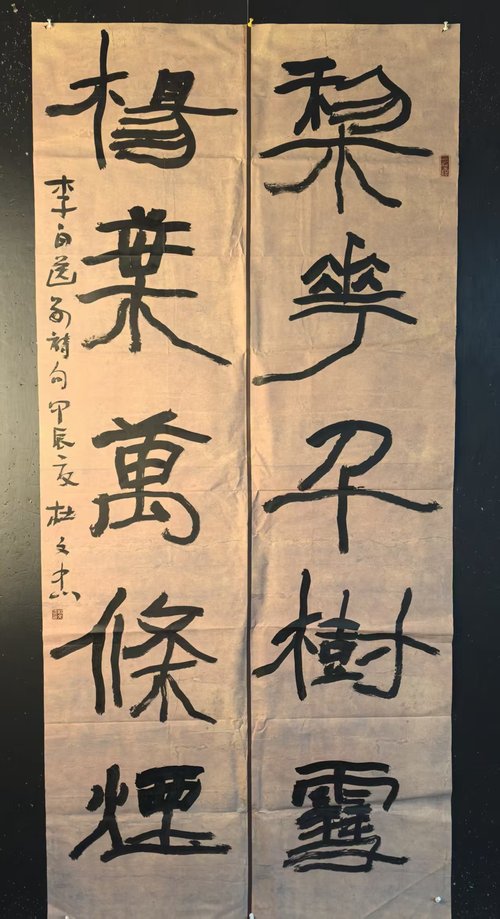 梨花千樹雪
楊葉萬條煙
李白送別詩句甲辰夏杜文忠